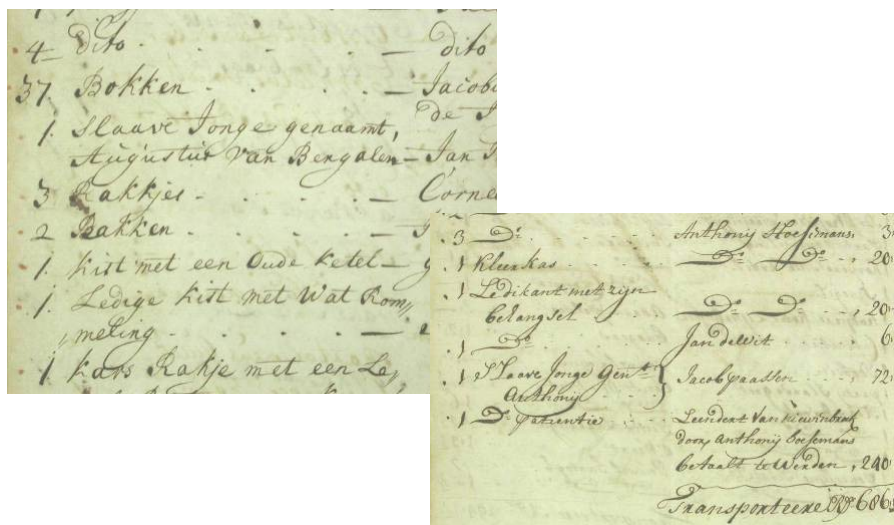 4 Dito - dito
37 Bokken - Jacob
de
1 Slaave Jonge genaamt,
Augustus van Bengalen - Jan
3 Rakkjes - Corne
2 Bakken -
1 Kist met een Oude Ketel -
1 Ledige Kist met Wat Rom„
„meling -
1 Kars Rakje met een Le„
3 D:o Anthonij Hoesemans 3
1 Kleerkas D:o D:o , 20
1 Ledikant met zijn
behangsel D:o D:o , 20
1 D:o Jan de Wit 6
1 Slaave Jonge Gen:t
Anthonij } Jacob paassen , 72
1 D:o patientie Leendert Van
door Anthonij
betaalt te Werden , 240
Transporteere R:s 686